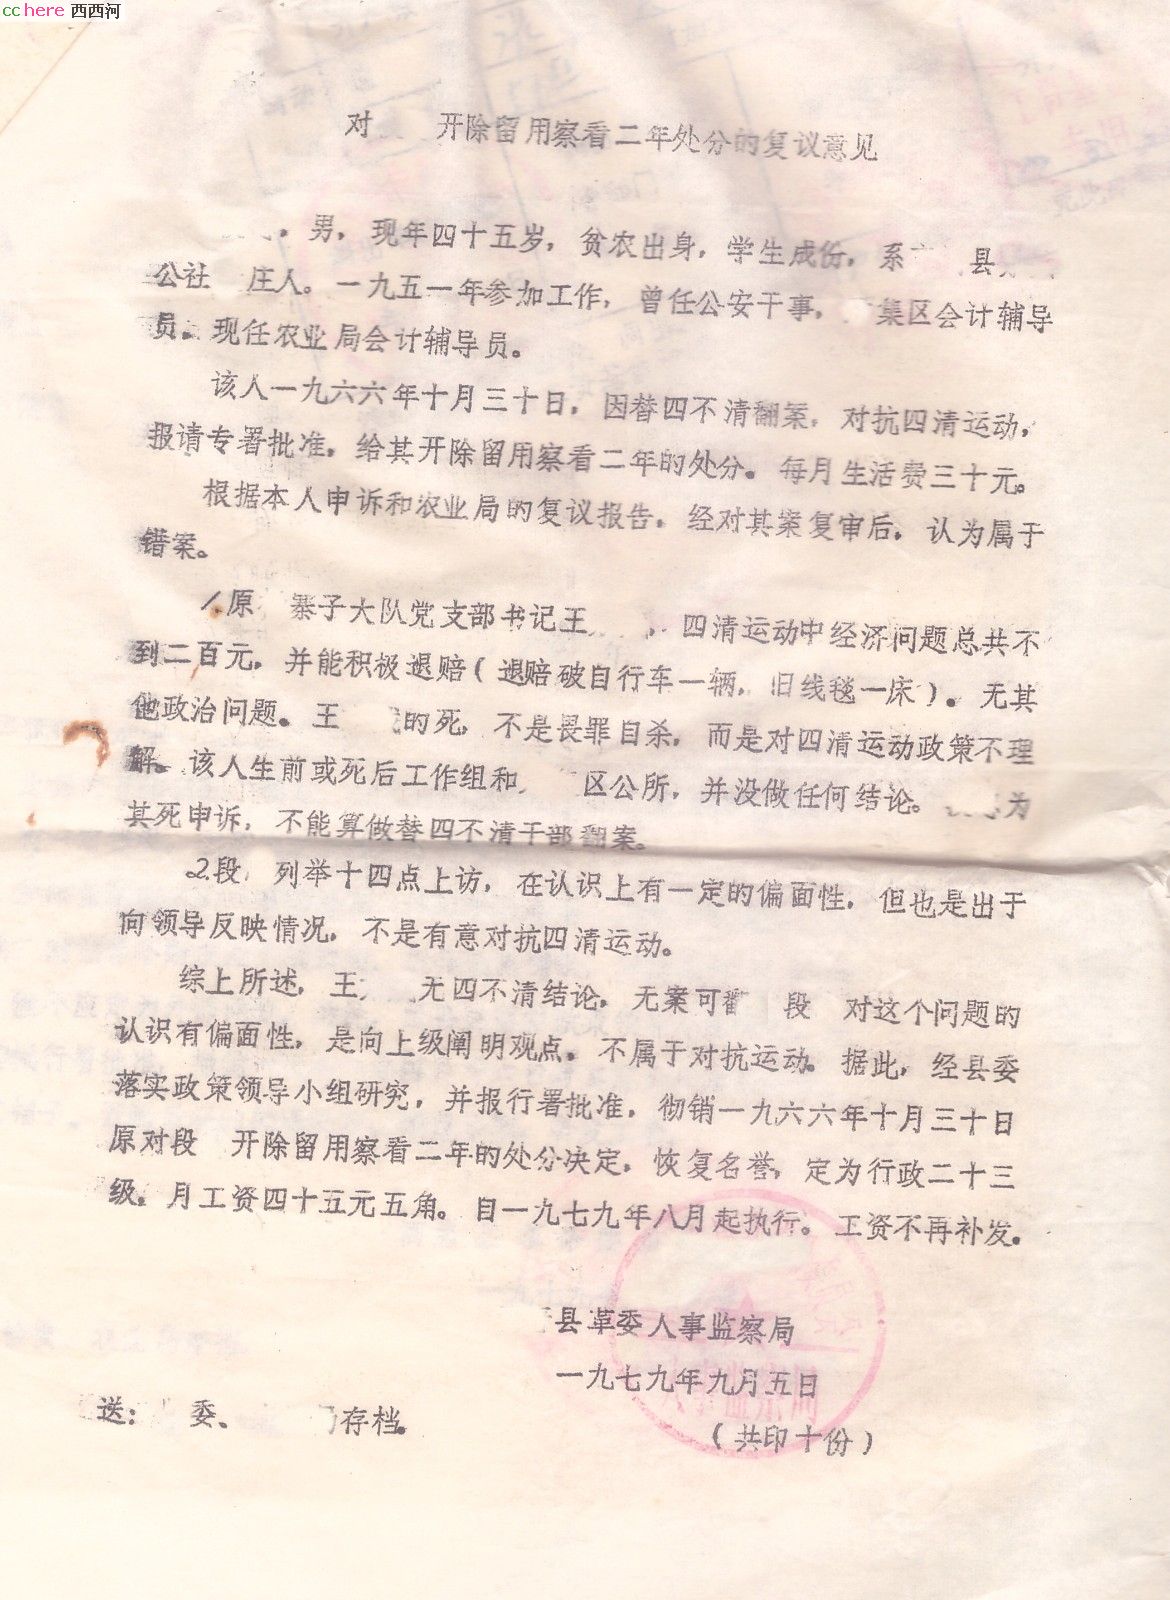 cchere 西西河
对 开除留用察看二年处分的复议意见
，男，现年四十五岁，贫农出身，学生成份，系 县
公社 庄人。一九五一年参加工作，曾任公安干事， 集区会计辅导
员。现任农业局会计辅导员。
该人一九六六年十月三十日，因替四不清翻案，对抗四清运动，
报请专署批准，给其开除留用察看二年的处分。每月生活费三十元。
根据本人申诉和农业局的复议报告，经对其案复审后，认为属于
错案。
1原 寨子大队党支部书记王 ，四清运动中经济问题总共不
到二百元，并能积极退赔（退赔破自行车一辆，旧线毯一床）。无其
他政治问题。王 的死，不是畏罪自杀，而是对四清运动政策不理
解。该人生前或死后工作组和 区公所，并没做任何结论。 为
其死申诉，不能算做替四不清干部翻案。
2.段 列举十四点上访，在认识上有一定的偏面性，但也是出于
向领导反映情况，不是有意对抗四清运动。
综上所述，王 无四不清结论，无案可翻 段 对这个问题的
认识有偏面性，是向上级阐明观点。不属于对抗运动。据此，经县委
落实政策领导小组研究，并报行署批准，彻销一九六六年十月三十日
原对段 开除留用察看二年的处分决定，恢复名誉，定为行政二十三
级。月工资四十五元五角。自一九七九年八月起执行。工资不再补发。
县革委人事监察局
一九七九年九月五日
送： 委、 存档。
（共印十份）